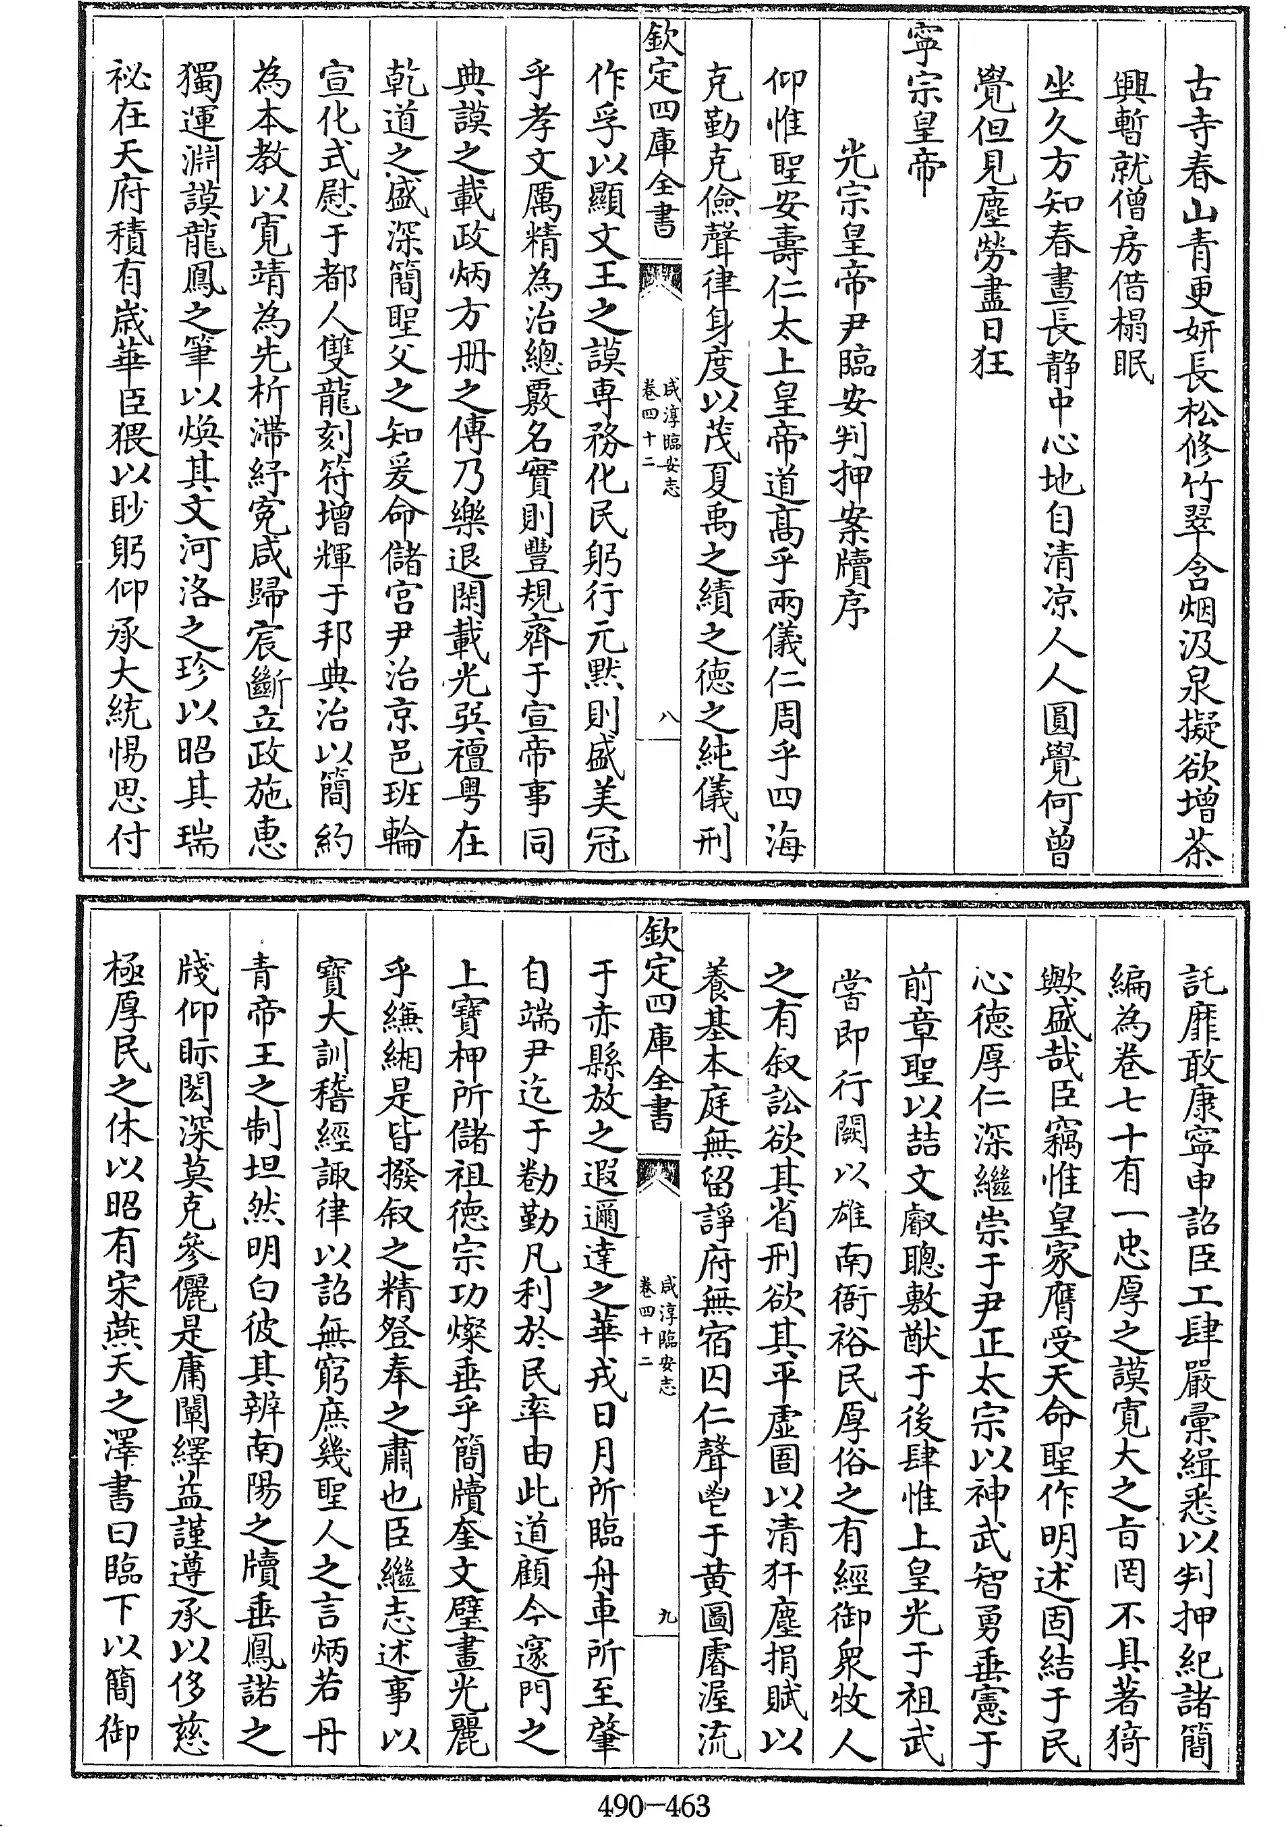 古寺春山青更妍長松修竹翠含烟汲泉擬欲增茶
興暫就僧房借榻眠
坐久方知春晝長静中心地自清凉人人圓覺何曾
覺但見塵勞盡日狂
寧宗皇帝
光宗皇帝尹臨安判押案牘序
仰惟聖安壽仁太上皇帝道髙乎兩儀仁周乎四海
克勤克儉聲律身度以茂夏禹之績之德之純儀刑
欽定四庫全書
咸淳臨安志
卷四十二
八
作孚以顯文王之謨専務化民躬行元黙則盛美冠
乎孝文厲精為治總覈名實則豐規齊于宣帝事同
典謨之載政炳方册之傳乃樂退閑載光㢲禮粤在
乾道之盛深簡聖父之知爰命儲宫尹治京邑班輪
宣化式慰于都人雙龍刻符增輝于邦典治以簡約
為本教以寛靖為先析滯紓寃咸歸宸斷立政施惠
獨運淵謨龍鳳之筆以煥其文河洛之珍以昭其瑞
祕在天府積有嵗華臣猥以眇躬仰承大統惕思付
託靡敢康寧申詔臣工肆嚴彙緝悉以判押紀諸簡
編為卷七十有一忠厚之謨寛大之㫖罔不具著猗
歟盛哉臣竊惟皇家膺受天命聖作明述固結于民
心德厚仁深繼崇于尹正太宗以神武智勇垂憲于
前章聖以喆文叡聰敷猷于後肆惟上皇光于祖武
當即行闕以雄南衙裕民厚俗之有經御衆牧人
之有叙訟欲其省刑欲其平虚圄以清犴塵捐賦以
養基本庭無留諍府無宿囚仁聲鬯于黄圖廥渥流
欽定四庫全書
咸淳臨安志
卷四十二
九
于赤縣放之遐邇達之華戎日月所臨舟車所至肇
自端尹迄于勌勤凡利於民率由此道顧今邃門之
上寶柙所儲祖德宗功燦垂乎簡牘奎文璧畫光麗
乎縑緗是皆撥叙之精登奉之肅也臣繼志述事以
寶大訓稽經諏律以詔無窮庶幾聖人之言炳若丹
青帝王之制坦然明白彼其辨南陽之牘垂鳳諾之
牋仰眎閎深莫克參儷是庸闡繹益謹遵承以侈慈
極厚民之休以昭有宋燕天之澤書曰臨下以簡御
490-463